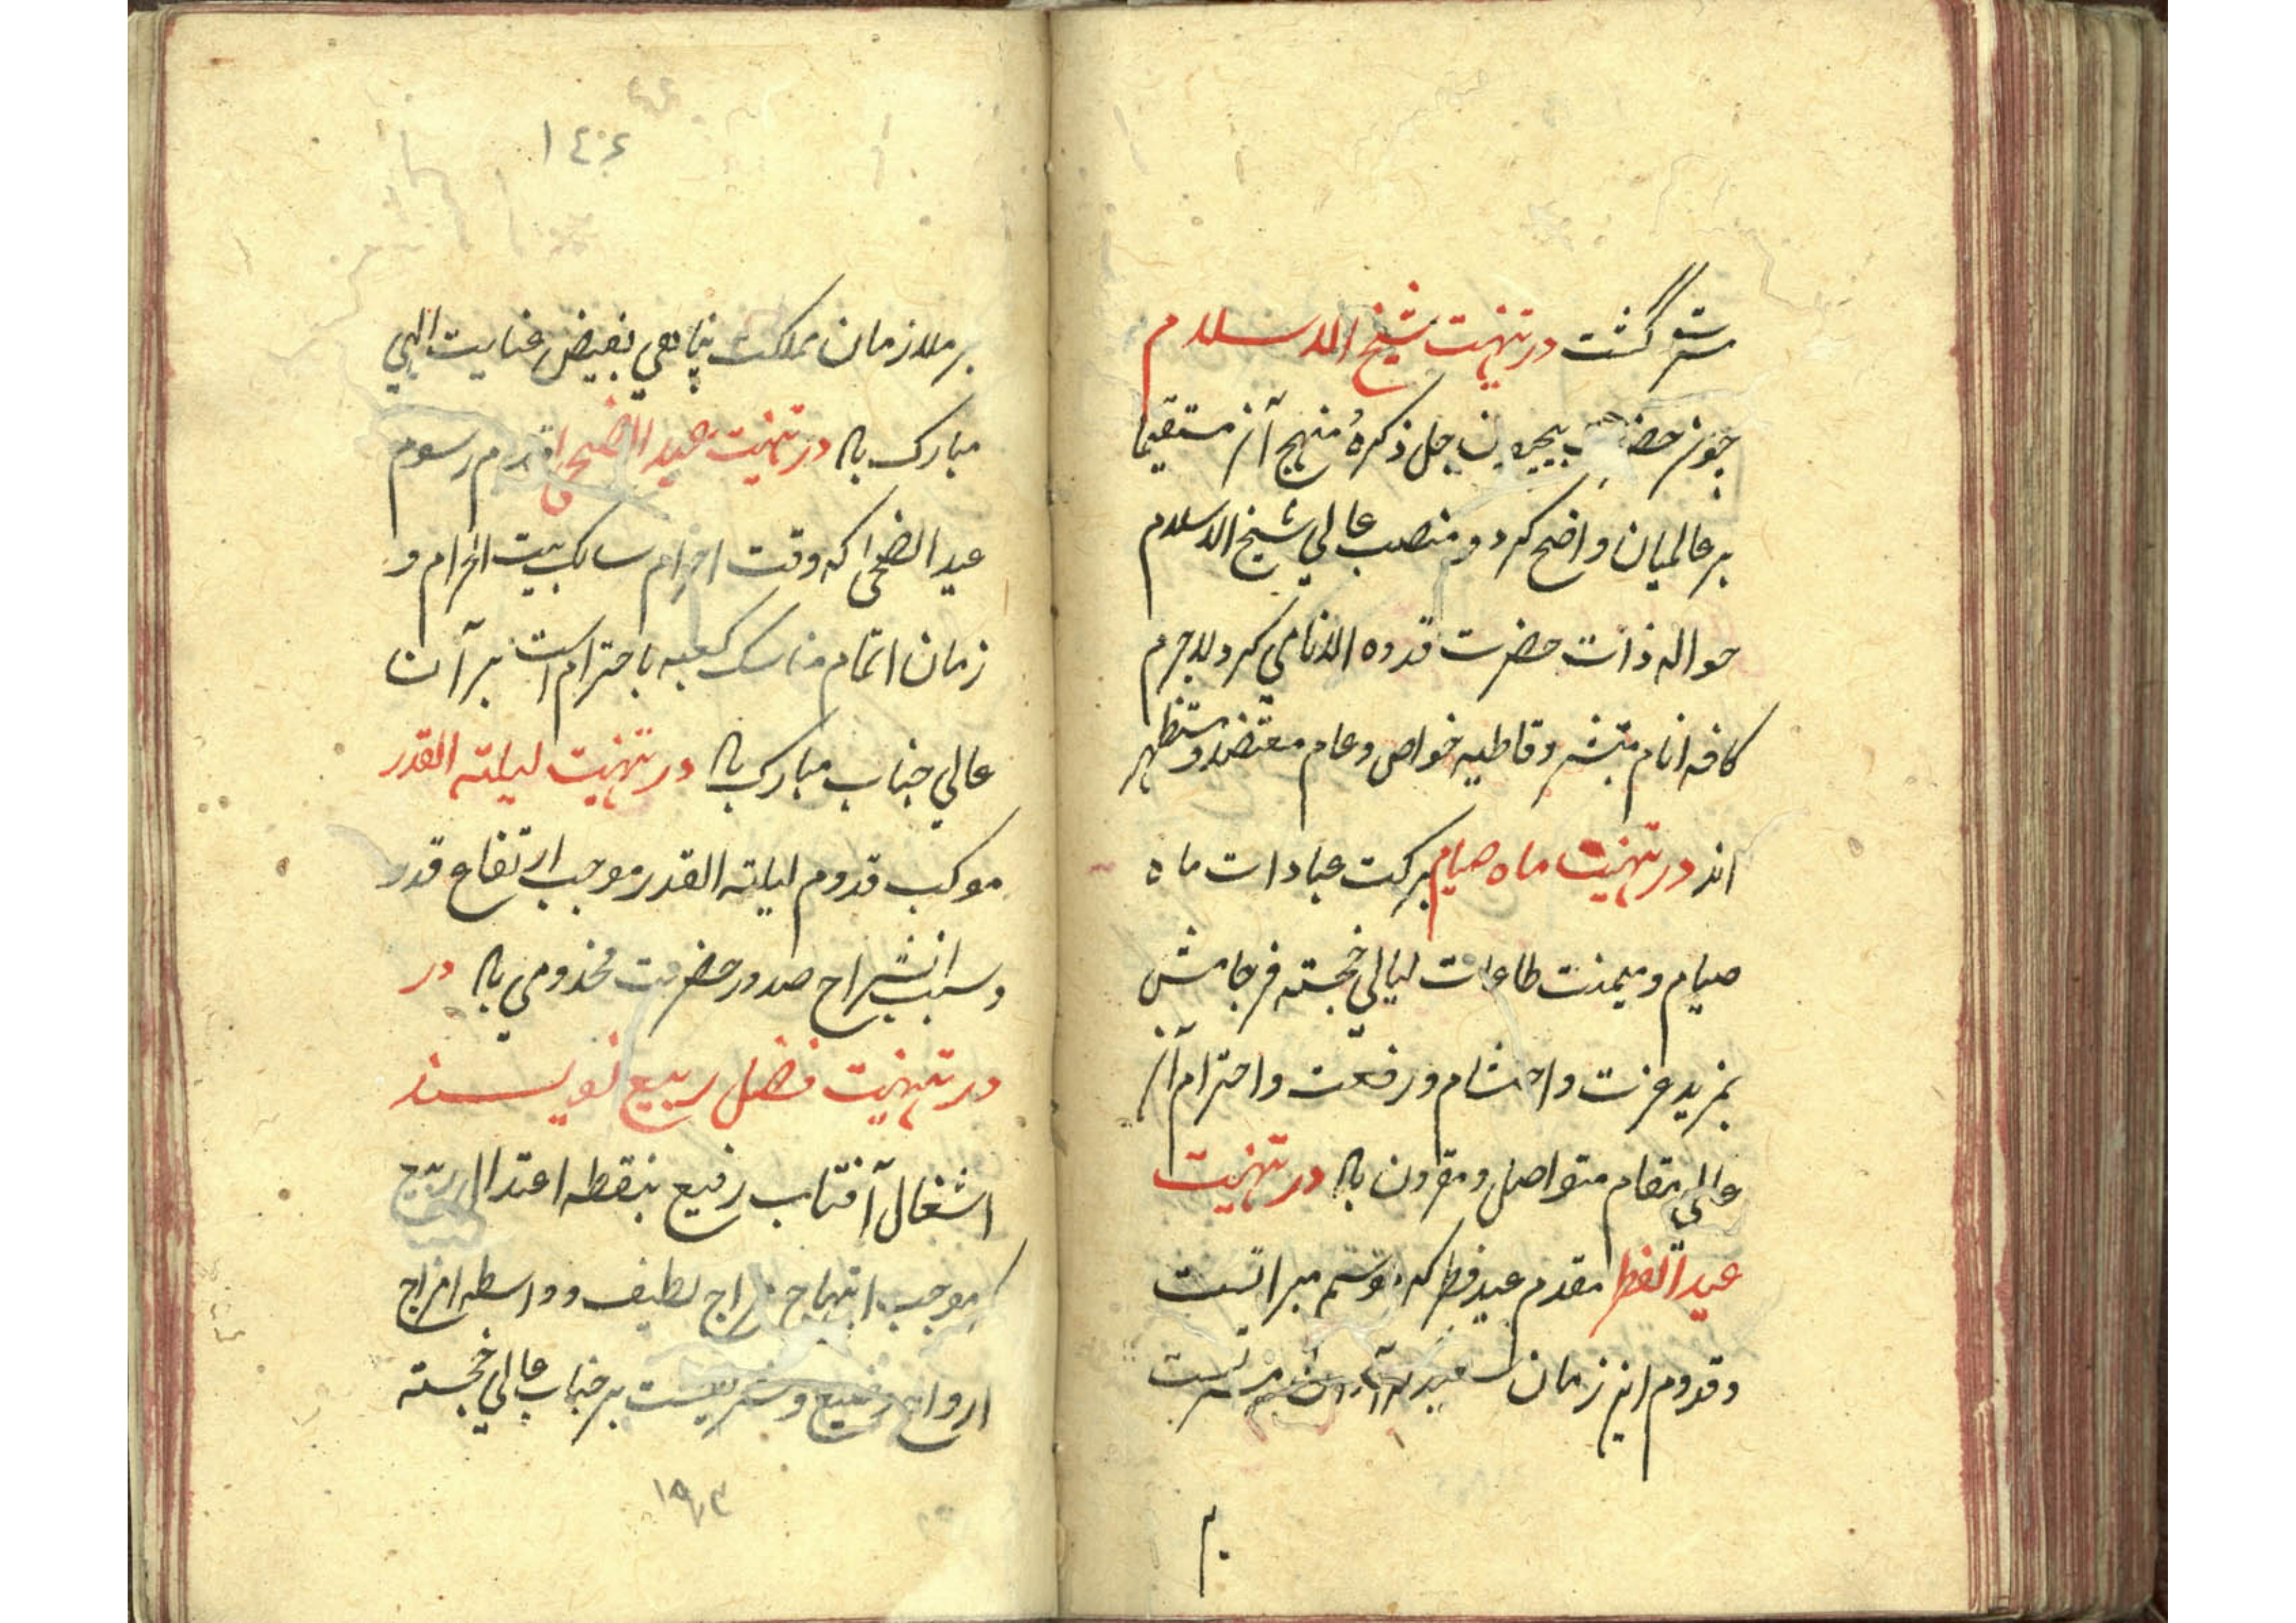 گشت در تهنیت شیخ الاسلام
چون بیچون جل ذکرهُ منهج آن مستقیما
بر عالمیان واضح کرد و منصب عالی شیخ الاسلام
حواله ذات حضرت قدوه الانامی کرد لاجرم
کافه انام مبتشر و قاطبه خواص و عام معتضد و مستظهر
اند در تهنیت ماه صیام برکت عبادات ماه
صیام و میمنت طاعات لیالی خجسته فرجامش
بمزید عزت و احتشام و رفعت و احترام آن
عالی مقام متواصل و مقرون باد در تهنیت
عید الفطر مقدم عید فطر که
و قدوم این زمان
م
١٤٠٤
بر ملازمان مملکت پناهی بفیض عنایت الهی
مبارک باد در تهنیت عید الضحی قدوم رسوم
عید الضحی که وقت احرام سالک بیت الحرام و
زمان اتمام مناسک کعبه با احترام است بر آن
عالی جناب مبارک باد در تهنیت لیلته القدر
موکب قدوم لیلته القدر موجب ارتفاع قدر
و سبب انشراح صدور حضرت مخدومی باد در
در تهنیت فصل ربیع نویسند
اشغال آفتاب رفیع بنقطه اعتدال ربیع
که موجب ابتهاج مزاج لطیف و واسطه امزاج
ارواح بر جناب عالی خجسته